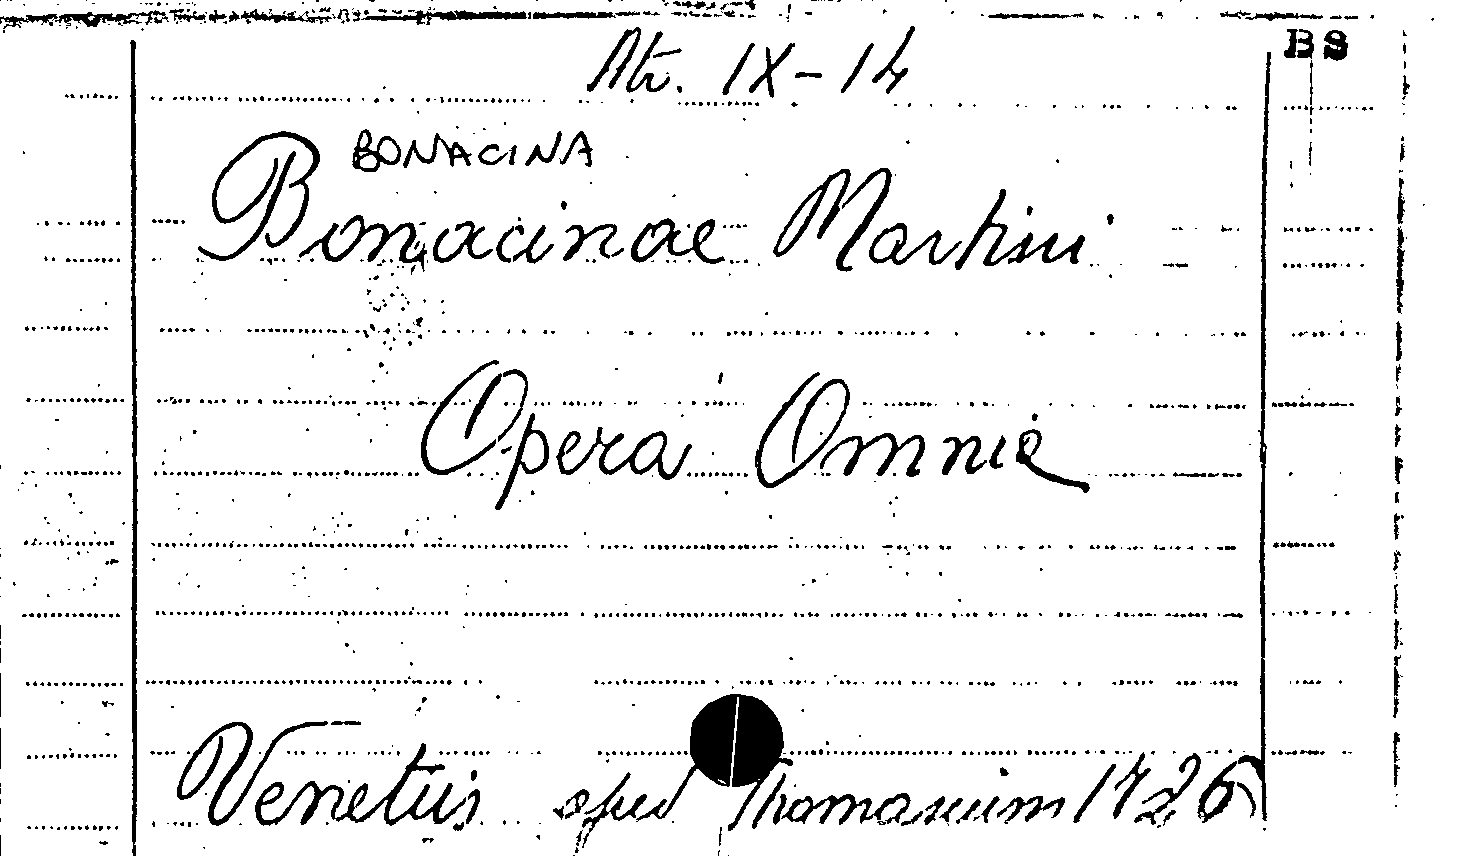 BS
Atr. IX-14
BONACINA
Bonacinae Martini
Opera Omnia
Venetiis apud Thomasium 1726